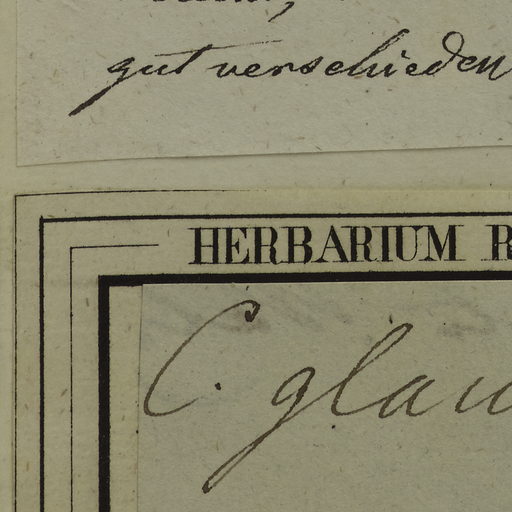 gut verschieden
HERBARIUM R
C. glau